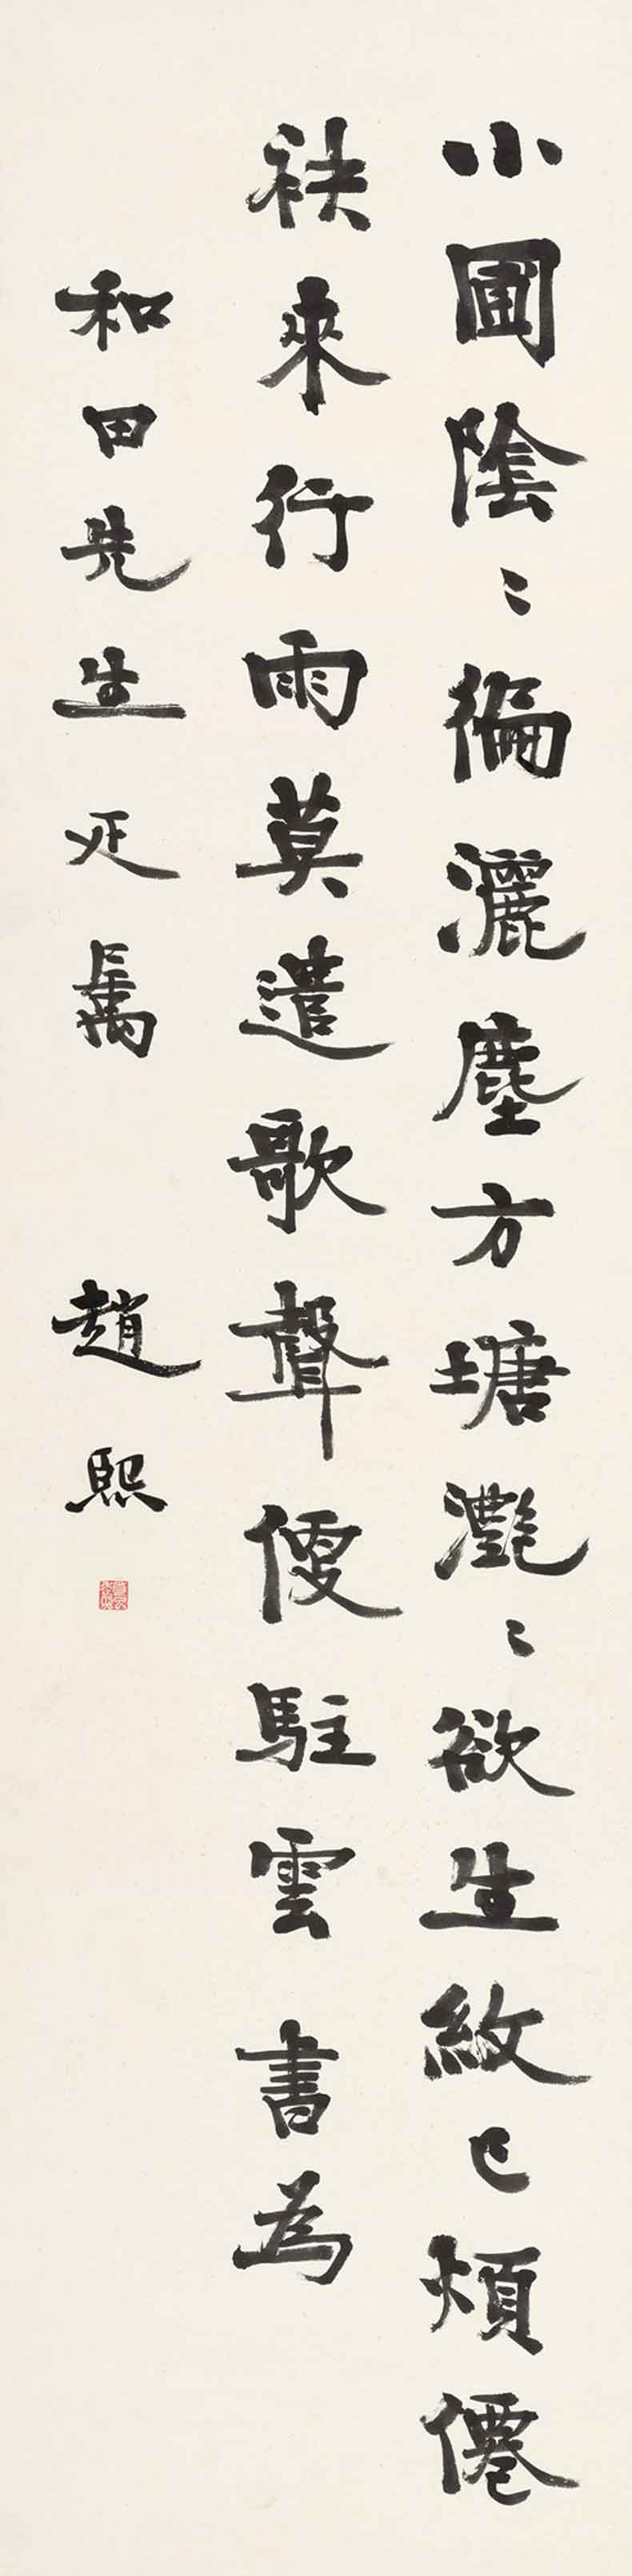 小圃陰〻徧灑塵方塘灔〻欲生紋已煩僊
袂來行雨莫遣歌聲便駐雲書為
和田先生疋屬
趙熙